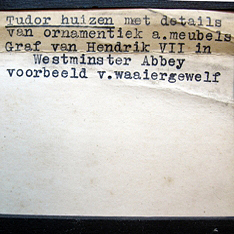 Tudor huizen met details
van ornamentiek a.meubels
Graf van Hendrik VII in
Westminster Abbey
voorbeeld v.waaiergewelf